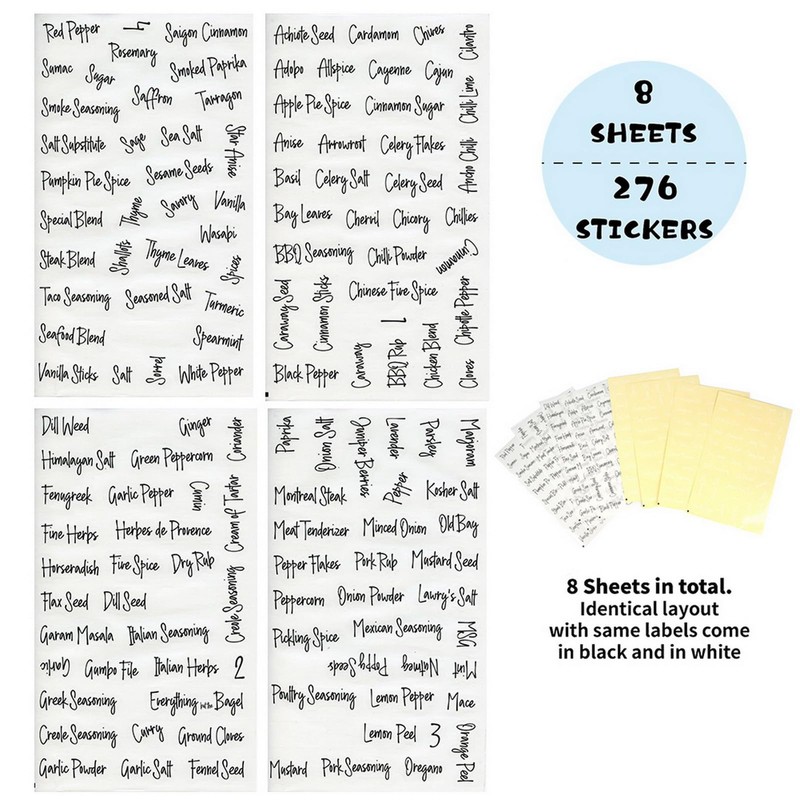 Red Pepper 4 Saigon Cinnamon
Rosemary
Sumac Sugar Smoked Paprika
Smoke Seasoning Saffron Tarragon
Salt Substitute Sage Sea Salt Star Anise
Pumpkin Pie Spice Sesame Seeds
Special Blend Thyme Savory Vanilla
Wasabi
Steak Blend Shallots Thyme Leaves Spices
Taco Seasoning Seasoned Salt Turmeric
Seafood Blend Spearmint
Vanilla Sticks Salt Sorrel White Pepper
Achiote Seed Cardamom Chives Cilantro
Adobo Allspice Cayenne Cajun
Apple Pie Spice Cinnamon Sugar Chili Lime
Anise Arrowroot Celery Flakes
Basil Celery Salt Celery Seed Ancho Chili
Bay Leaves Chervil Chicory Chillies
BBQ Seasoning Chilli Powder Cinnamon
Caraway Seed Cinnamon Sticks Chinese Five Spice Chipotle Pepper
Black Pepper Caraway BBQ Rub 1 Chicken Blend Cloves
8
SHEETS
276
STICKERS
Dill Weed Ginger Coriander
Himalayan Salt Green Peppercorn
Fenugreek Garlic Pepper Cumin Cream of Tartar
Fine Herbs Herbes de Provence
Horseradish Five Spice Dry Rub
Flax Seed Dill Seed Creole Seasoning
Garam Masala Italian Seasoning
Garlic Gumbo File Italian Herbs 2
Greek Seasoning Everything but the Bagel
Creole Seasoning Curry Ground Cloves
Garlic Powder Garlic Salt Fennel Seed
Paprika Onion Salt Juniper Berries Lavender Parsley Marjoram
Montreal Steak Pepper Kosher Salt
Meat Tenderizer Minced Onion Old Bay
Pepper Flakes Pork Rub Mustard Seed
Peppercorn Onion Powder Lawry's Salt
Pickling Spice Mexican Seasoning MSG
Poppy Seeds Nutmeg Mint
Poultry Seasoning Lemon Pepper Mace
Lemon Peel 3 Orange Peel
Mustard Pork Seasoning Oregano
8 Sheets in total.
Identical layout
with same labels come
in black and in white